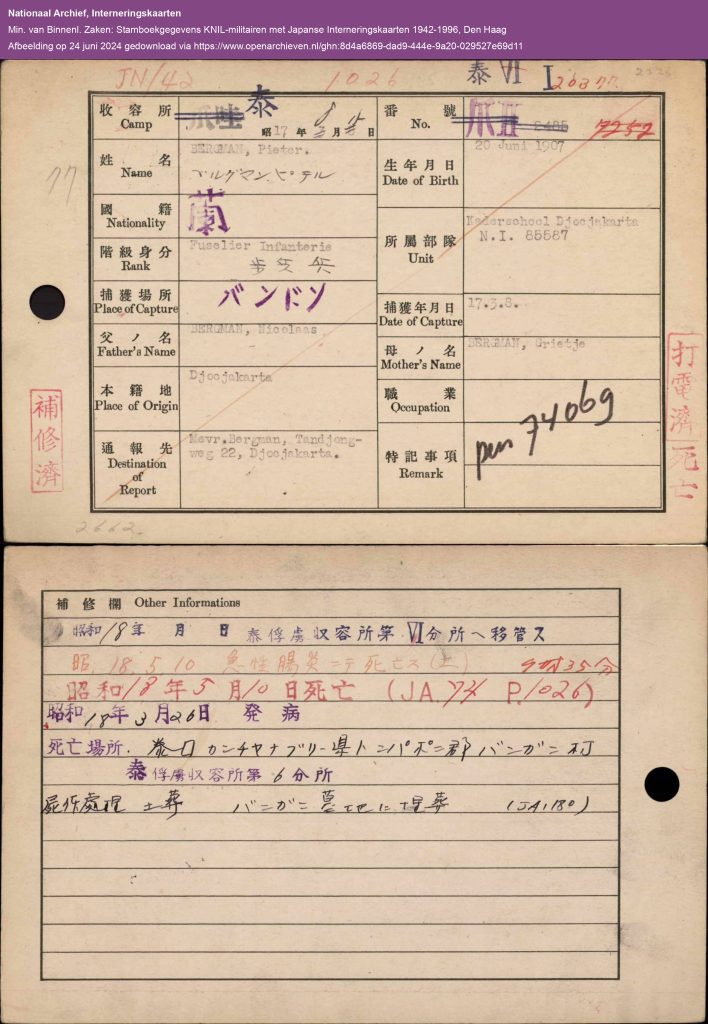 Nationaal Archief, Interneringskaarten
Min. van Binnenl. Zaken: Stamboekgegevens KNIL-militairen met Japanse Interneringskaarten 1942-1996, Den Haag
Afbeelding op 24 juni 2024 gedownload via https://www.openarchieven.nl/ghn:8d4a6869-dad9-444e-9a20-029527e69d11
JN/42 1026 泰 VI I 20377
收容所
Camp
爪哇 泰
昭17年 月 日
番號
No.
爪 II 8486 7252
姓名
Name
BERGMAN, Pieter.
ベルグマン ピーテル
生年月日
Date of Birth
20 Juni 1907
國籍
Nationality
蘭
所屬部隊
Unit
Kaderschool Djocjakarta
N.I. 85587
階級身分
Rank
Fuselier Infanterie
步兵
捕獲場所
Place of Capture
バンドン
捕獲年月日
Date of Capture
17.3.8.
父ノ名
Father's Name
BERGMAN, Nicolaas
母ノ名
Mother's Name
BERGMAN, Grietje
本籍地
Place of Origin
Djocjakarta
職業
Occupation
通報先
Destination
of
Report
Mevr.Bergman, Tandjong-
weg 22, Djocjakarta.
特記事項
Remark
pen 74069
補修濟
打電濟 死亡
77
2662
補修欄 Other Informations
昭和18年 月 日 泰俘虜収容所第VI分所ヘ移管ス
昭.18.5.10 急性腸炎ニテ死亡ス(土) 9時35分
昭和18年5月10日死亡 (JA.74 P.1026)
昭和18年3月26日 発病
死亡場所. 泰国カンチャナブリー県トンパポン郡バンガン村
泰俘虜収容所第6分所
屍体處理 土葬 バンガン墓地に埋葬 (JA1180)